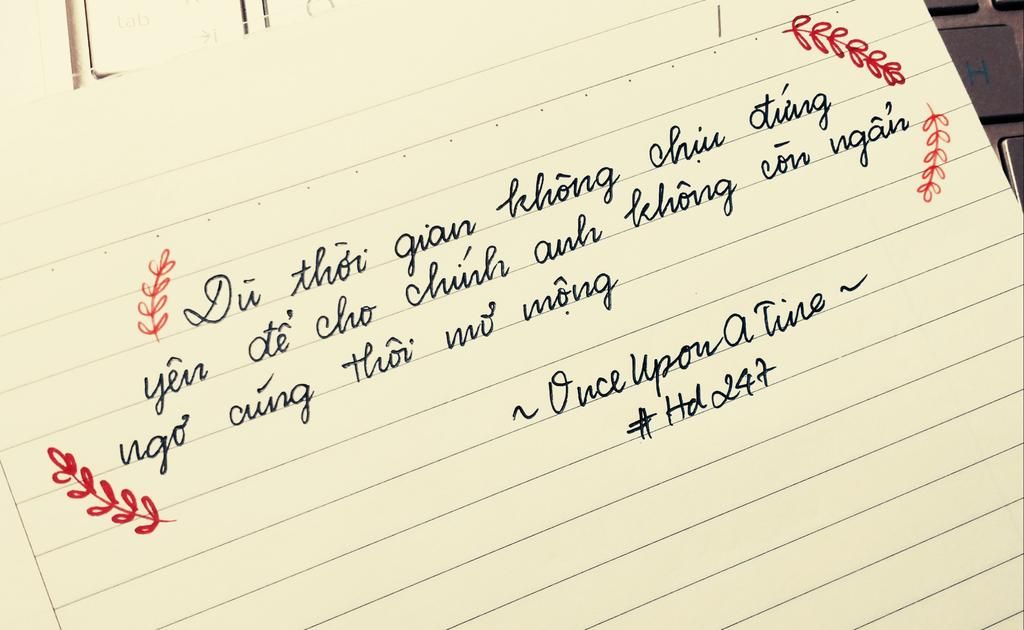 tab
H
Dù thời gian không chịu đứng
yên để cho chính anh không còn ngẩn
ngơ cũng thôi mơ mộng
~ Once Upon A Time ~
#Hd247